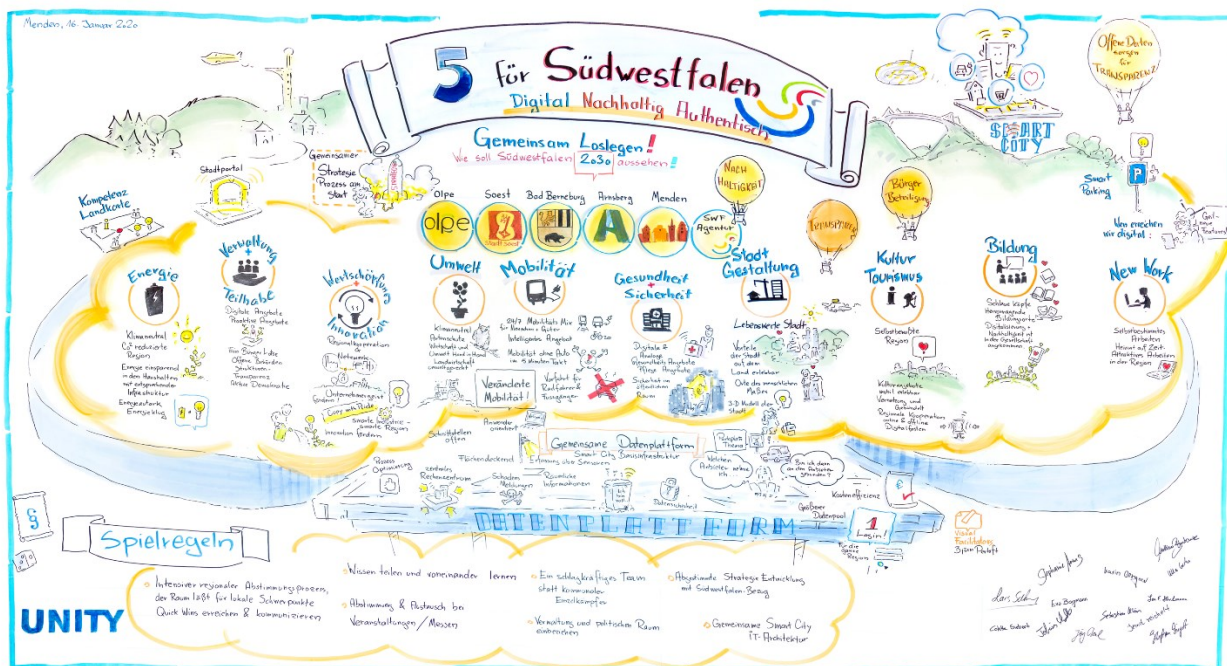 Menden, 16. Januar 2020
5 für Südwestfalen
Digital Nachhaltig Authentisch
Gemeinsam Loslegen!
Wie soll Südwestfalen 2030 aussehen!
Offene Daten
sorgen
für
TRANSPARENZ
SMART
CITY
Smart
Parking
Wen erreichen
wir digital:
Stadtportal
Gemeinsamer
Strategie
Prozess am
Start
Kompetenz
Landkarte
NACH
HALTIGKEIT
Bürger
Beteiligung
TRANSPARENZ
Olpe
Soest
Bad Berneburg
Arnsberg
Menden
olpe
Stadt Soest
A
SWF
Agentur
Energie
Klimaneutral
CO² reduzierte
Region
Energie einsparend
in den Haushalten
mit entsprechender
Infrastruktur
Energieautark
Energieklug
Verwaltung
+
Teilhabe
Digitale Angebote
Proaktive Angebote
Offene Behörden
Strukturen
Transparenz
Wertschöpfung
+
Innovation
Netzwerk
Unternehmergeist
fördern
Copy with Pride
smarte Industrie -
smarte Region
Innovation fördern
Umwelt
Klimaneutral
Wirtschaft und
Umwelt Hand in Hand
Mobilität
24/7 Mobilitäts Mix
für Menschen & Güter
Intelligentes Angebot
Mobilität ohne Auto
im 5 Minuten Takt
Vorfahrt für
Radfahrer &
Fussgänger
Veränderte
Mobilität!
Gesundheit
+
Sicherheit
Digitale &
Analoge
Gesundheits Angebote
Pflege Angebote
Sicherheit im
öffentlichen
Raum
Stadt
Gestaltung
Lebenswerte Stadt
Vorteile
der Stadt
auf dem
Land erlebbar
Orte des menschlichen
Maßes
3-D Modell der
Stadt
Kultur
Tourismus
Selbstbewußte
Region
Kulturangebote
digital erlebbar
Vernetzung und
Regionale Kooperation
online & offline
Bildung
Schlaue Köpfe
Hervorragende
Bildungsorte
Digitalisierung +
Nachhaltigkeit ist
in der Gesellschaft
angekommen
New Work
Selbstbestimmtes
Arbeiten
Heimat auf Zeit
Attraktives Arbeiten
in der Region
Anwender
orientiert
Schnittstellen
offen
Gemeinsame Datenplattform
Smart City Basisinfrastruktur
Flächendeckend
Erfassung über Sensoren
Prozess
Optimierung
zentrales
Rechenzentrum
Schadens
Meldungen
Räumliche
Informationen
Datensicherheit
Welchen
Parkplatz nehme
ich
Kosteneffizienz
Größerer
Datenpool
1
Login!
für die
ganze
Region
DATENPLATTFORM
Visual
Facilitation
Spielregeln
Intensiver regionaler Abstimmungsprozess,
der Raum läßt für lokale Schwerpunkte
Quick Wins erreichen & kommunizieren
Wissen teilen und voneinander lernen
Abstimmung & Austausch bei
Veranstaltungen / Messen
Ein schlagkräftiges Team
statt kommunaler
Einzelkämpfer
Verwaltung und politischen Raum
einbeziehen
Abgestimmte Strategie Entwicklung
mit Südwestfalen-Bezug
Gemeinsame Smart City
IT-Architektur
UNITY